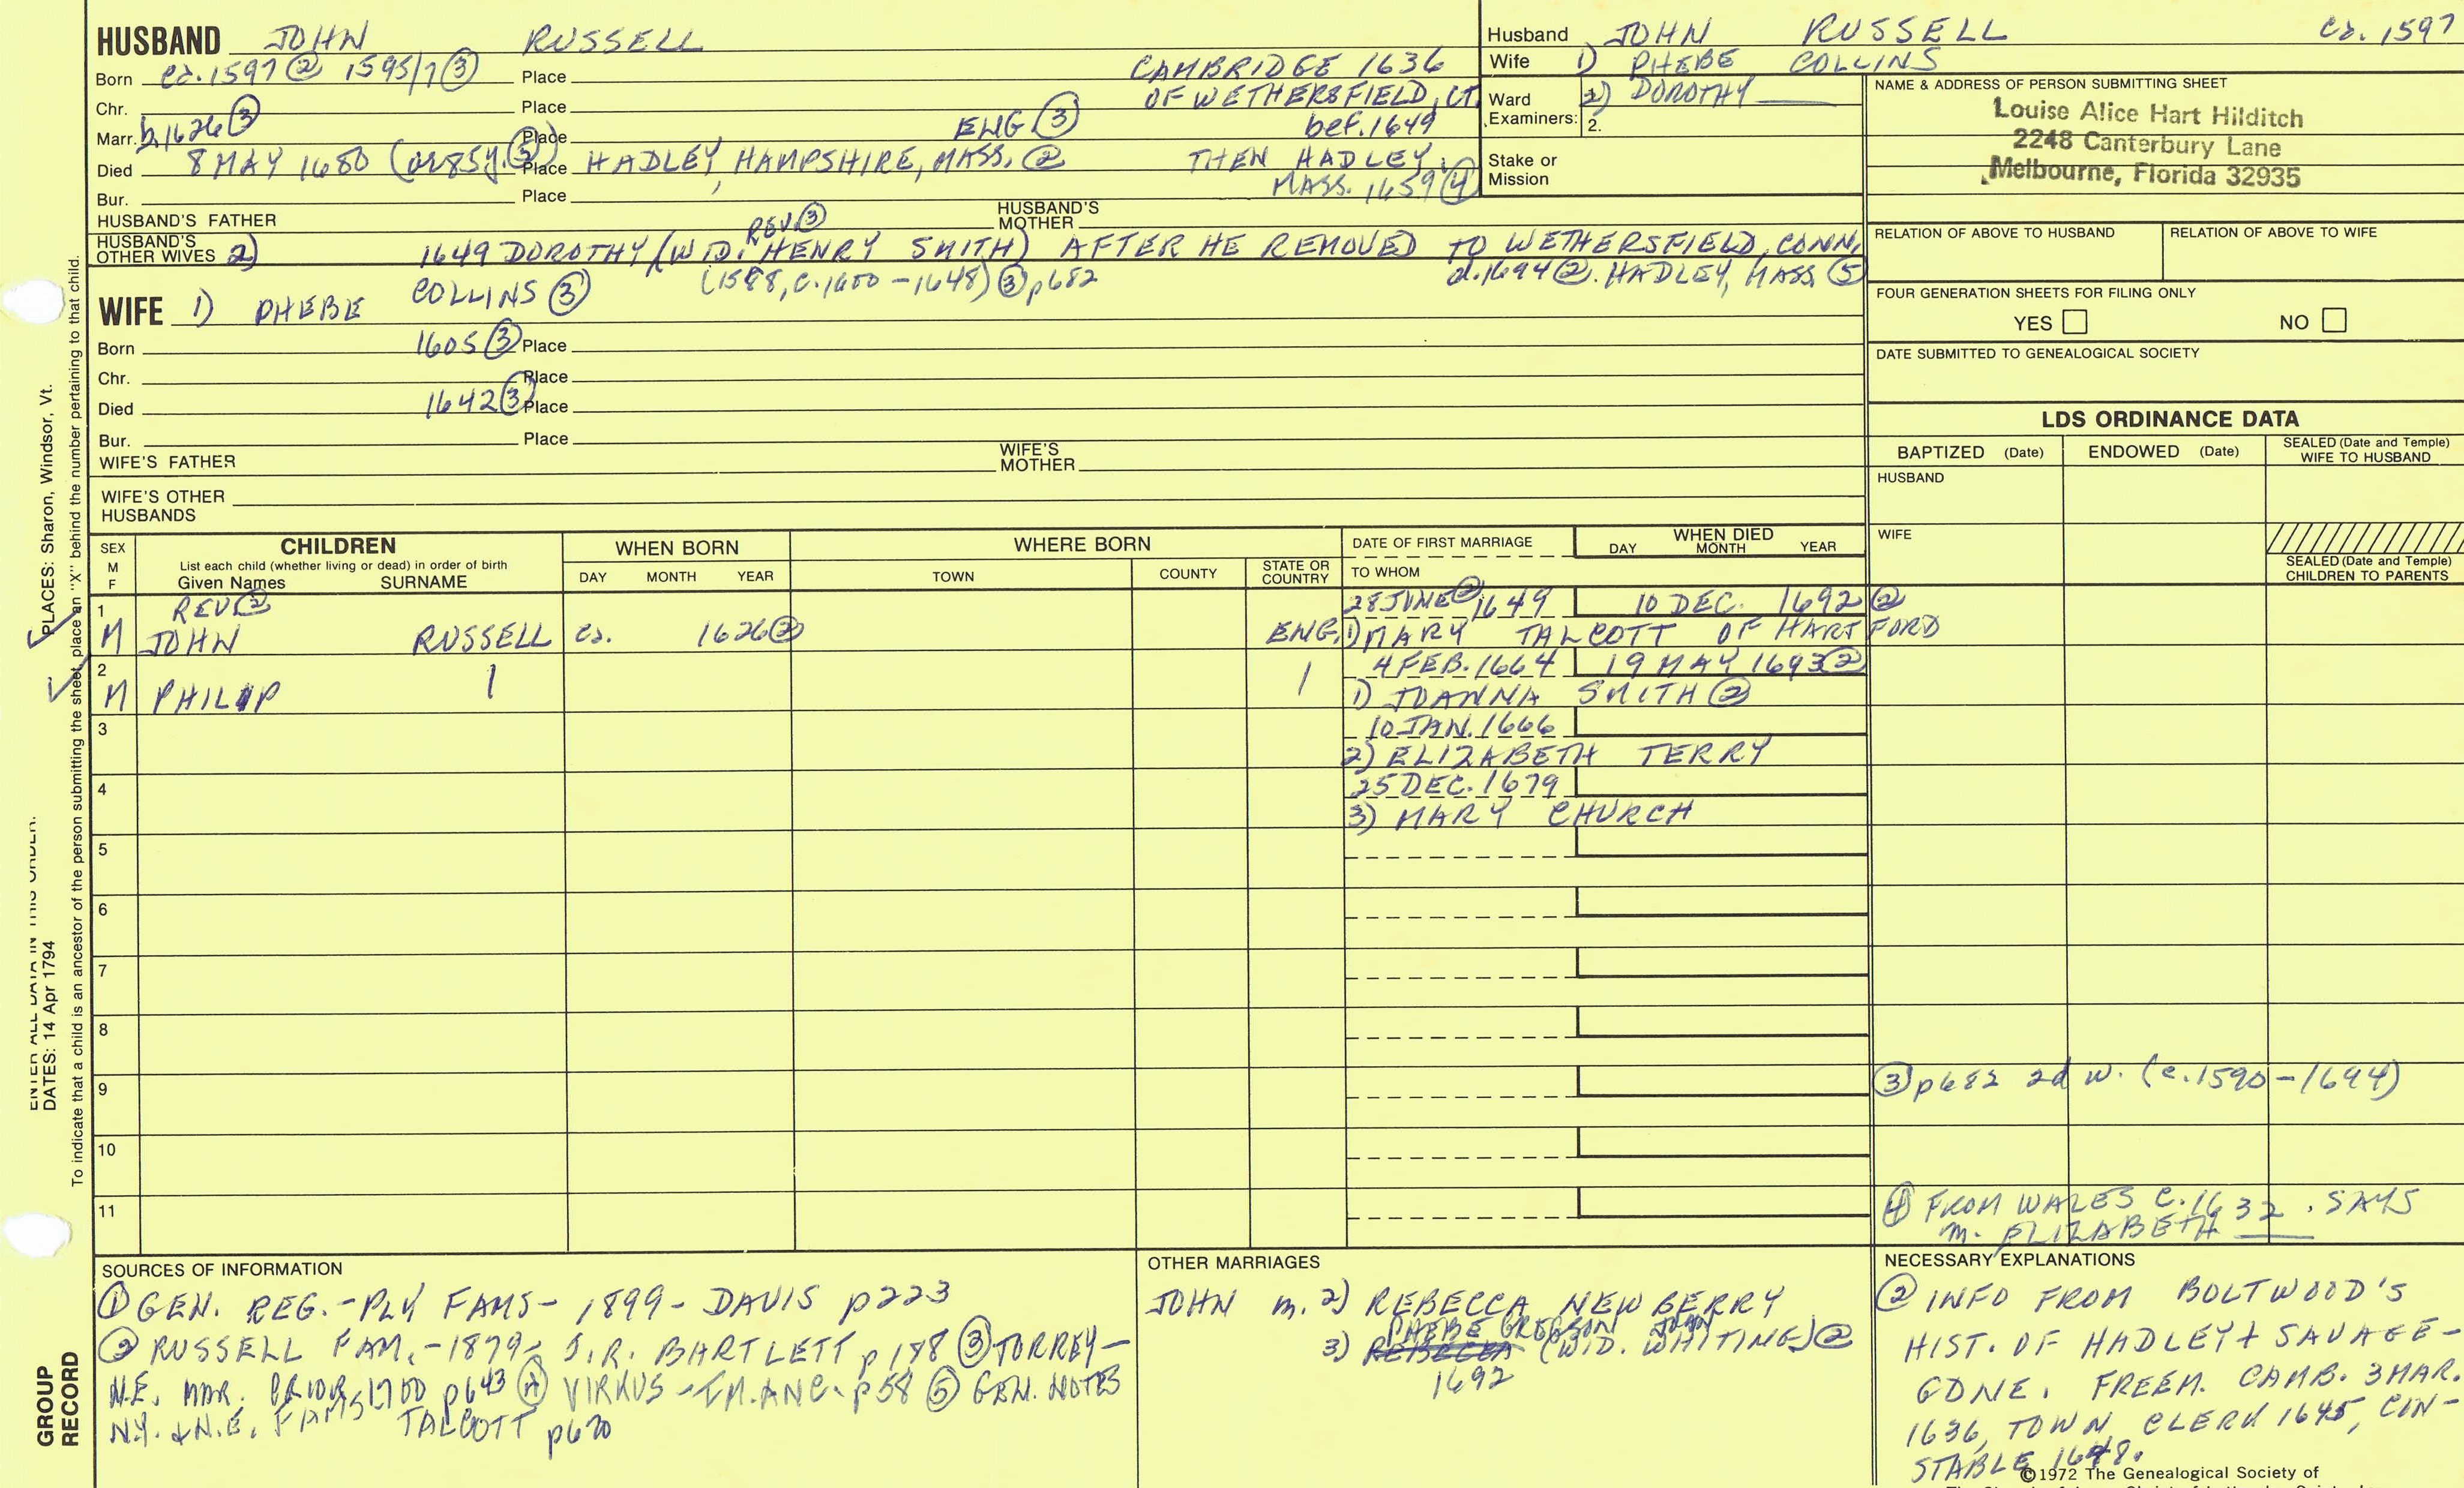 HUSBAND JOHN RUSSELL
Born ca. 1597 ② 1595/7 ③ Place CAMBRIDGE 1636
Chr. Place OF WETHERSFIELD, CT.
Marr. b. 1626 ③ Place ENG ③ bef. 1649
Died 8 MAY 1680 (or 85y. ③) Place HADLEY, HAMPSHIRE, MASS. ② THEN HADLEY,
MASS. 1659 ④
Bur. Place
HUSBAND'S FATHER HUSBAND'S MOTHER
REV ③
HUSBAND'S OTHER WIVES 2) 1649 DOROTHY (WID. HENRY SMITH) AFTER HE REMOVED TO WETHERSFIELD, CONN.
(1588, c. 1600 - 1648) ③ p682 d. 1694 ②. HADLEY, MASS. ⑤
WIFE 1) PHEBE COLLINS ③
Born 1605 ③ Place
Chr. Place
Died 1642 ③ Place
Bur. Place
WIFE'S FATHER WIFE'S MOTHER
WIFE'S OTHER HUSBANDS
Husband JOHN RUSSELL ca. 1597
Wife 1) PHEBE COLLINS
Ward Examiners: 1. 2) DOROTHY
2.
Stake or Mission
NAME & ADDRESS OF PERSON SUBMITTING SHEET
Louise Alice Hart Hilditch
2248 Canterbury Lane
Melbourne, Florida 32935
RELATION OF ABOVE TO HUSBAND RELATION OF ABOVE TO WIFE
FOUR GENERATION SHEETS FOR FILING ONLY
YES NO
DATE SUBMITTED TO GENEALOGICAL SOCIETY
LDS ORDINANCE DATA
BAPTIZED (Date) ENDOWED (Date) SEALED (Date and Temple) WIFE TO HUSBAND
HUSBAND
WIFE
SEALED (Date and Temple) CHILDREN TO PARENTS
SEX M F
CHILDREN
List each child (whether living or dead) in order of birth
Given Names SURNAME
WHEN BORN
DAY MONTH YEAR
WHERE BORN
TOWN COUNTY STATE OR COUNTRY
DATE OF FIRST MARRIAGE
TO WHOM
WHEN DIED
DAY MONTH YEAR
1 REV ② 28 JUNE ② 1649 10 DEC. 1692 ②
M JOHN RUSSELL ca. 1626 ② ENG. 1) MARY TALCOTT OF HARTFORD
2 4 FEB. 1664 19 MAY 1693 ②
M PHILIP 1) JOANNA SMITH ②
3 10 JAN. 1666
2) ELIZABETH TERRY
4 25 DEC. 1679
3) MARY CHURCH
5
6
7
8
9 ③ p682 2d w. (c. 1590 - 1694)
10
11 ④ FROM WALES C. 1632. SAYS
m. ELIZABETH
SOURCES OF INFORMATION
① GEN. REG. - PLY FAMS - 1899 - DAVIS p223
② RUSSELL FAM. - 1879 - J.R. BARTLETT p188 ③ TORREY -
N.E. MAR. PRIOR 1700 p643 ④ VIRKUS - IM. ANC. p58 ⑤ GEN. NOTES
N.Y. & N.E. FAMS TALCOTT p620
OTHER MARRIAGES
JOHN m. 2) REBECCA NEWBERRY
PHEBE GREGSON JOHN
3) REBECCA (WID. WHITING) ②
1692
NECESSARY EXPLANATIONS
② INFO FROM BOLTWOOD'S
HIST. OF HADLEY + SAVAGE -
GDNE. FREEM. CAMB. 3 MAR.
1636, TOWN CLERK 1645, CON-
STABLE 1648.
©1972 The Genealogical Society of
PLACES: Sharon, Windsor, Vt.
ENTER ALL DATA IN THIS ORDER.
DATES: 14 Apr 1794
To indicate that a child is an ancestor of the person submitting the sheet, place an "X" behind the number pertaining to that child.
GROUP RECORD